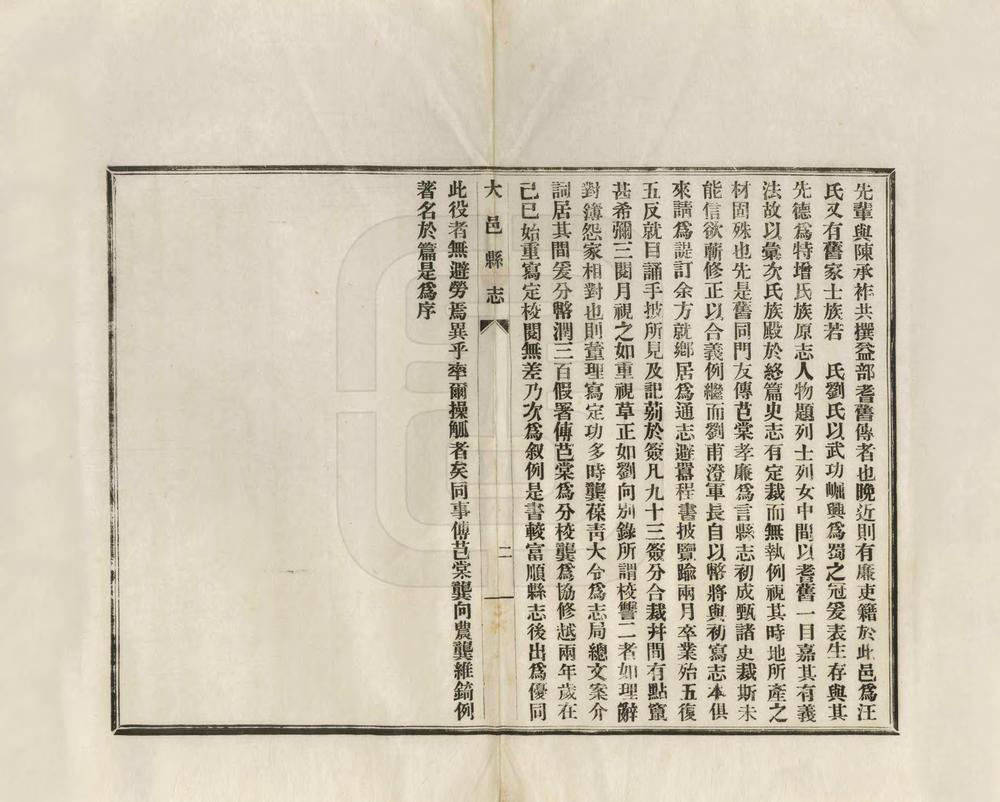 先輩與陳承祚共撰益部耆舊傳者也晚近則有廉吏籍於此邑爲汪
氏又有舊家士族若　氏劉氏以武功崛興爲蜀之冠爰表生存與其
先德爲特增氏族原志人物題列士列女中間以耆舊一目嘉其有義
法故以彙次氏族殿於終篇史志有定裁而無執例視其時地所產之
材固殊也先是舊同門友傳芭棠孝廉爲言縣志初成甄諸史裁斯未
能信欲蘄修正以合義例繼而劉甫澄軍長自以幣將與初寫志本俱
來請爲諟訂余方就鄉居爲通志避囂程書披覽踰兩月卒業殆五復
五反就目誦手披所見及記剏於簽凡九十三簽分合裁幷間有點竄
甚希彌三閱月視之如重視草正如劉向別錄所謂校讐二者如理辭
對簿怨家相對也則董理寫定功多時龔葆青大令爲志局總文案介
詞居其間爰分幣潤三百假署傅芭棠爲分校龔爲協修越兩年歲在
己巳始重寫定校閱無差乃次爲叙例是書較富順縣志後出爲優同
大邑縣志
二
此役者無避勞焉異乎率爾操觚者矣同事傅芭棠龔向農龔維錡例
著名於篇是爲序